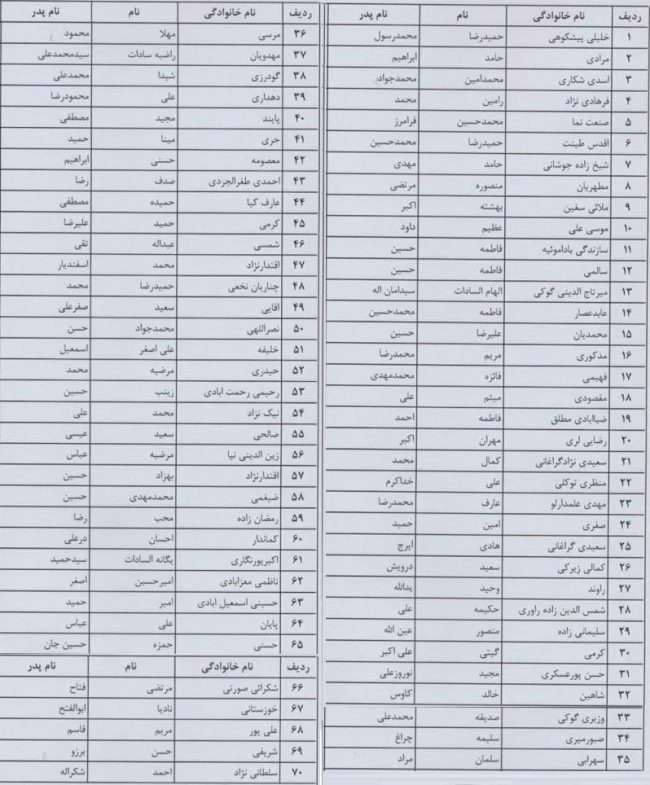 ردیف نام خانوادگی نام نام پدر
۱ خلیلی پیشکوهی حمیدرضا محمدرسول
۲ مرادی حامد ابراهیم
۳ اسدی شکاری محمدامین محمدجواد
۴ فرهادی نژاد رامین محمد
۵ صنعت نما محمدحسین فرامرز
۶ اقدس طینت حمیدرضا محمدحسین
۷ شیخ زاده جوشانی حامد مهدی
۸ مطهریان منصوره مرتضی
۹ ملائی سفین بهشته اکبر
۱۰ موسی علی عظیم داود
۱۱ سازندگی باداموئیه فاطمه حسین
۱۲ سالمی فاطمه حسین
۱۳ میرتاج الدینی گوکی الهام السادات سیدامان اله
۱۴ عابدعصار فاطمه محمدحسین
۱۵ محمدیان علیرضا حسین
۱۶ مذکوری مریم محمدرضا
۱۷ فهیمی فائزه محمدمهدی
۱۸ مقصودی میثم علی
۱۹ ضیاابادی مطلق فاطمه احمد
۲۰ رضایی لری مهران اکبر
۲۱ سعیدی نژادگراغانی کمال محمد
۲۲ منظری توکلی علی خداکرم
۲۳ مهدی علمدارلو عارف محمدرضا
۲۴ صفری امین حمید
۲۵ سعیدی گراغانی هادی ایرج
۲۶ کمالی زیرکی سعید درویش
۲۷ راوند وحید یدالله
۲۸ شمس الدین زاده راوری حکیمه علی
۲۹ سلیمانی زاده منصور عین الله
۳۰ کرمی گیتی علی اکبر
۳۱ حسن پورعسکری مجید نوروزعلی
۳۲ شاهین خالد کاوس
۳۳ وزیری گوکی صدیقه محمدعلی
۳۴ صبورمیری سلیمه چراغ
۳۵ سهرابی سلمان مراد
ردیف نام خانوادگی نام نام پدر
۳۶ مرسی مهلا محمود
۳۷ مهدویان راضیه سادات سیدمحمدعلی
۳۸ گودرزی شیدا محمدعلی
۳۹ دهداری علی محمودرضا
۴۰ پایند مجید مصطفی
۴۱ حری مینا حمید
۴۲ معصومه حسنی ابراهیم
۴۳ احمدی طغرالجردی صدف رضا
۴۴ عارف کیا حمیده مصطفی
۴۵ کرمی حمید علیرضا
۴۶ شمسی عبداله تقی
۴۷ اقتدارنژاد محمد اسفندیار
۴۸ چناریان نخعی حمیدرضا محمد
۴۹ اقایی سعید صفرعلی
۵۰ نصراللهی محمدجواد حسن
۵۱ خلیفه علی اصغر اسمعیل
۵۲ حیدری مرضیه محمد
۵۳ رحیمی رحمت ابادی زینب حسین
۵۴ نیک نژاد محمد علی
۵۵ صالحی سعید عیسی
۵۶ زین الدینی نیا مرضیه عباس
۵۷ اقتدارنژاد بهزاد حسین
۵۸ ضیغمی محمدمهدی حسین
۵۹ رمضان زاده محب رضا
۶۰ کماندار احسان درعلی
۶۱ اکبرپورنگاری یگانه السادات سیدحمید
۶۲ ناظمی معزابادی امیرحسین اصغر
۶۳ حسینی اسمعیل ابادی امیر حمید
۶۴ پایان علی عباس
۶۵ حسنی حمزه حسین جان
ردیف نام خانوادگی نام نام پدر
۶۶ شکرائی صورتی مرتضی فتاح
۶۷ خوزستانی نادیا ابوالفتح
۶۸ علی پور مریم قاسم
۶۹ شریفی حسن برزو
۷۰ سلطانی نژاد احمد شکراله